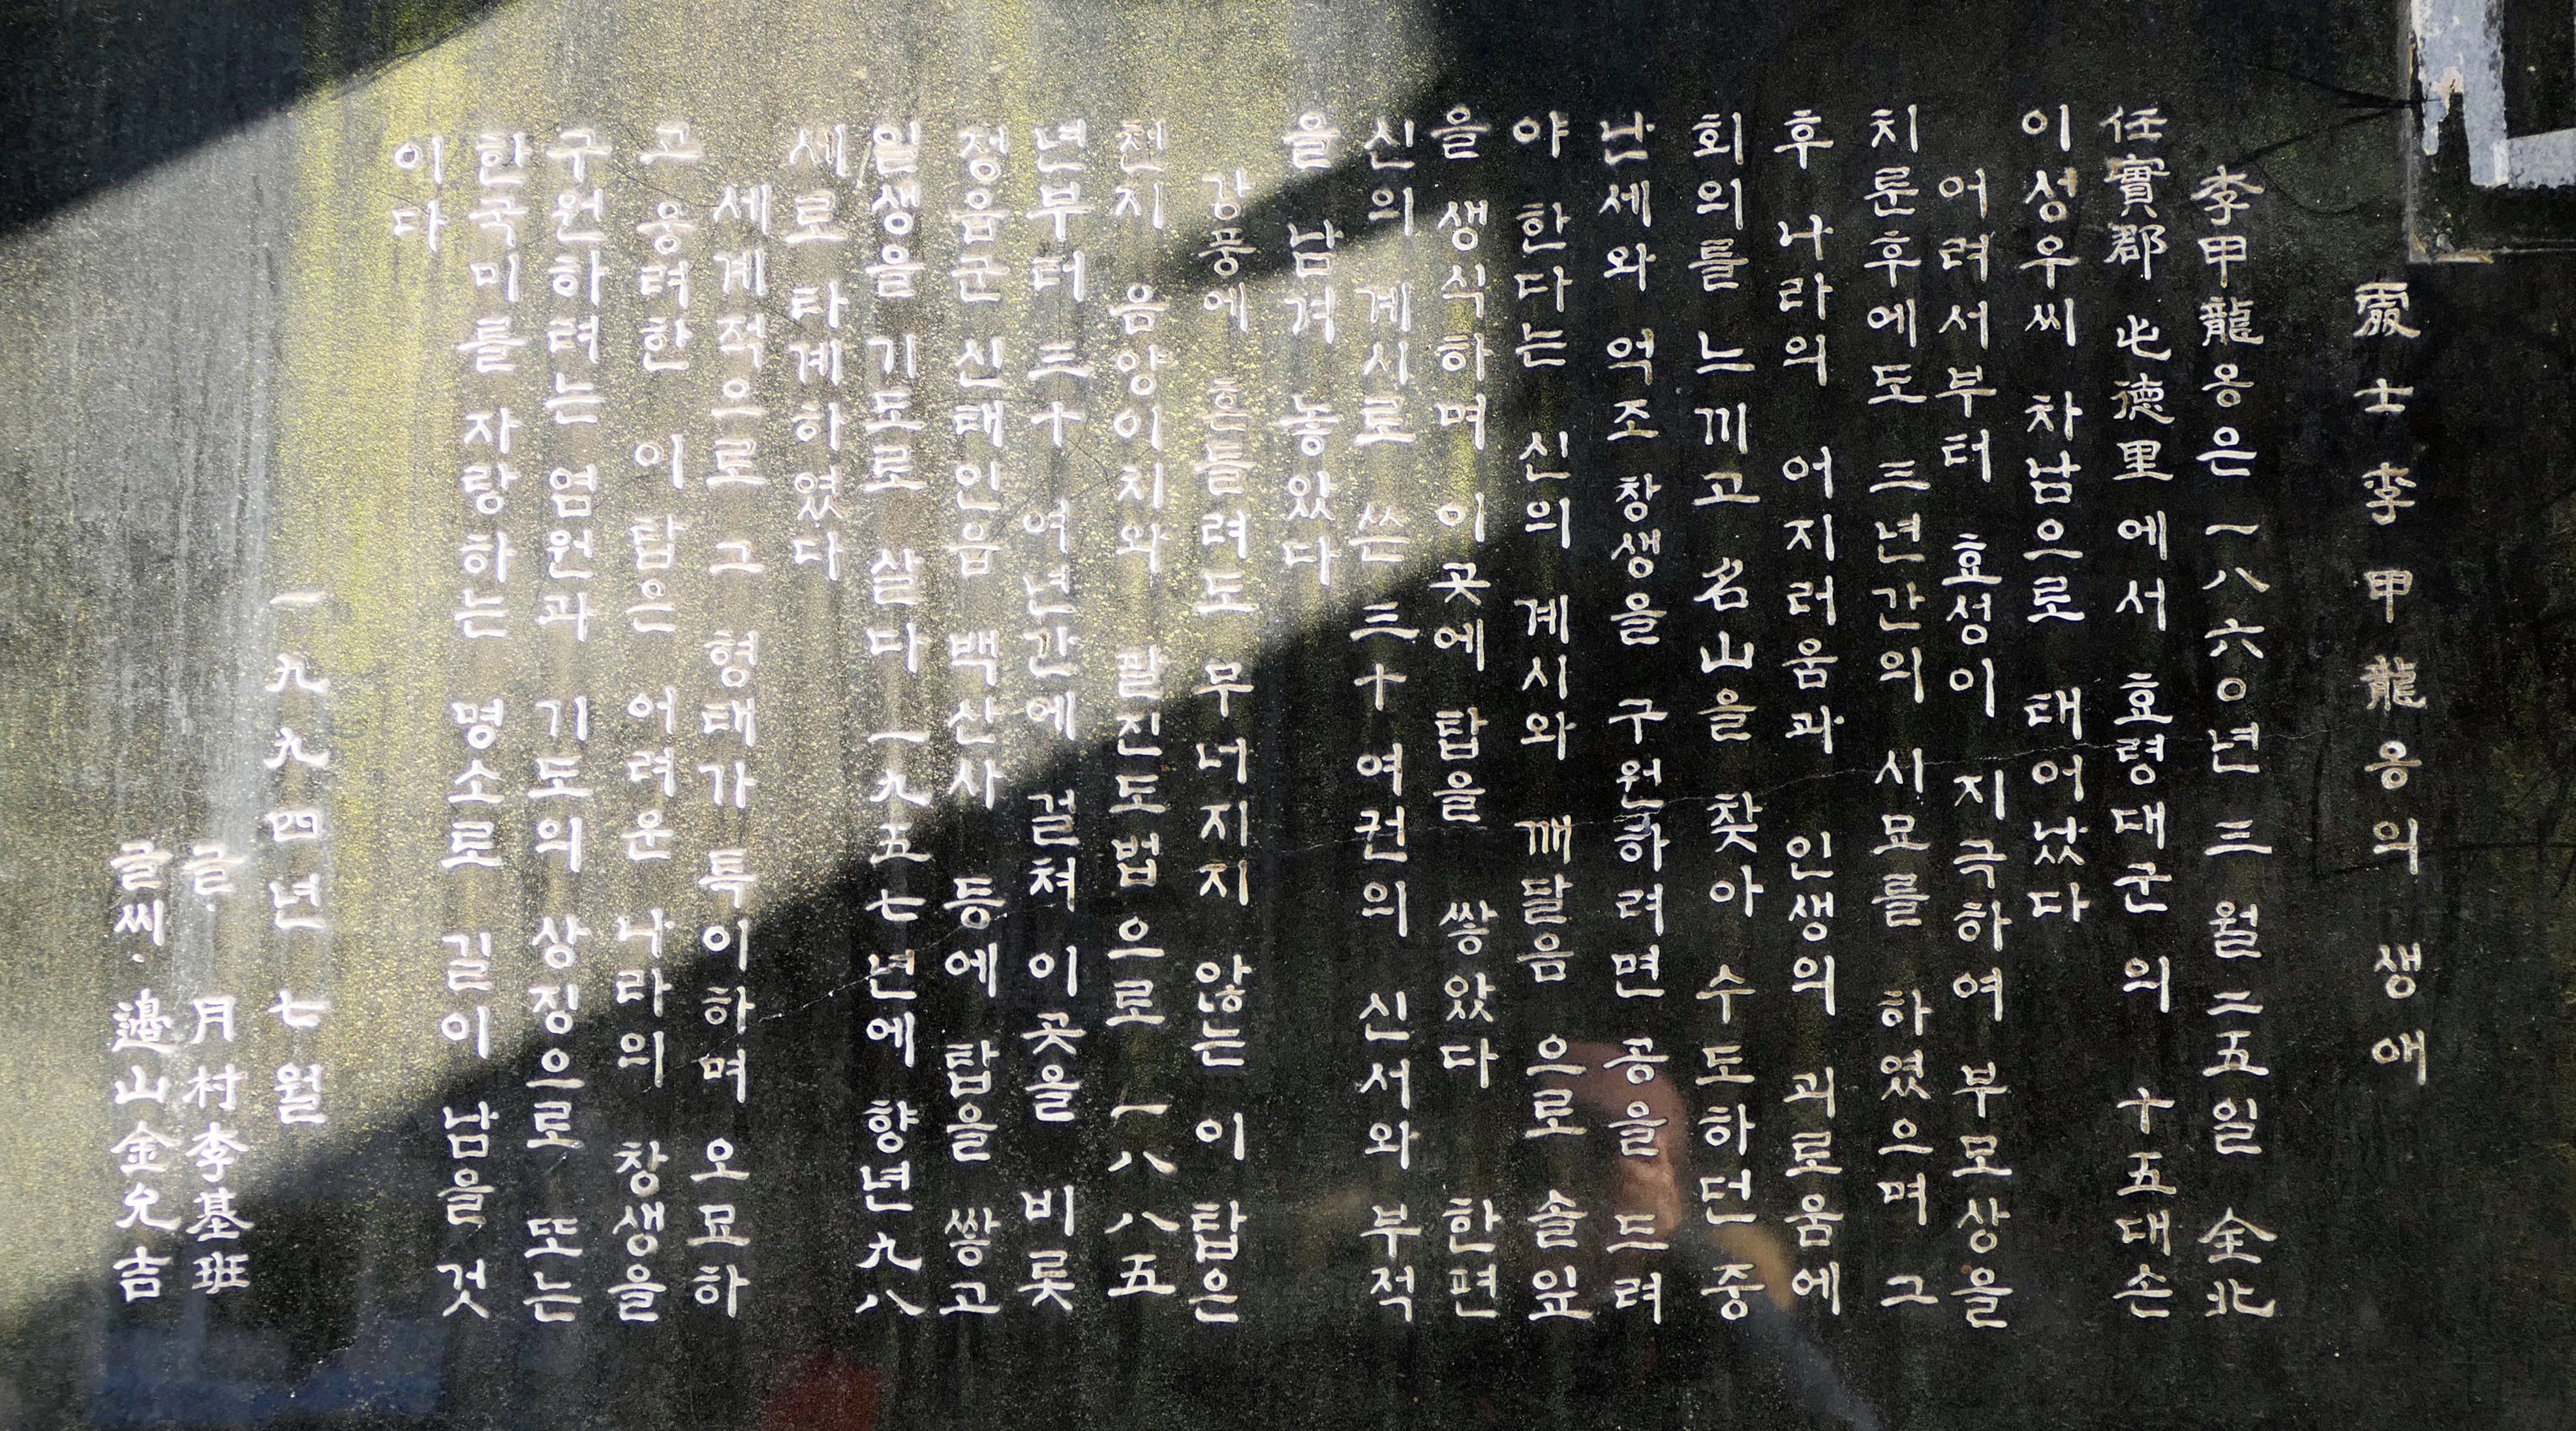 處士李甲龍옹의 생애
李甲龍옹은 一八六0년 三월 二五일 全北
任實郡 屯德里에서 효령대군의 十五대손
이성우씨 차남으로 태어났다
어려서부터 효성이 지극하여 부모상을
치룬후에도 三년간의 시묘를 하였으며 그
후 나라의 어지러움과 인생의 괴로움에
회의를 느끼고 名山을 찾아 수도하던 중
난세와 억조창생을 구원하려면 공을 드려
야 한다는 신의 계시와 깨달음 으로 솔잎
을 생식하며 이곳에 탑을 쌓았다 한편
신의 계시로 쓴 三十여권의 신서와 부적
을 남겨 놓았다
강풍에 흔들려도 무너지지 않는 이 탑은
천지 음양이치와 팔진도법으로 一八八五
년부터 三十 여년간에 걸쳐 이곳을 비롯
정읍군 신태인읍 백산사 등에 탑을 쌓고
일생을 기도로 살다 一九五七년에 향년 九八
세로 타계하였다
세계적으로 그 형태가 특이하며 오묘하
고 웅려한 이 탑은 어려운 나라의 창생을
구원하려는 염원과 기도의 상징으로 또는
한국미를 자랑하는 명소로 길이 남을 것
이다
一九九四년 七월
글· 月村李基班
글씨· 邊山金允吉